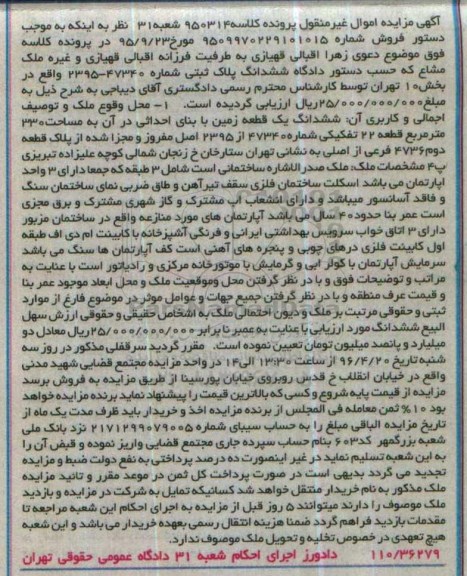 آگهی مزایده اموال غیرمنقول پرونده کلاسه۹۵۰۳۱۴ شعبه۳۱ نظر به اینکه به موجب
دستور فروش شماره ۹۵۰۹۹۷۰۲۲۹۱۰۱۰۱۵ مورخ۹۵/۹/۲۳ در پرونده کلاسه
فوق موضوع دعوی زهرا اقبالی قهیازی به طرفیت فرزانه اقبالی قهیازی و غیره ملک
مشاع که حسب دستور دادگاه ششدانگ پلاک ثبتی شماره ۴۷۳۴۰-۲۳۹۵ واقع در
بخش۱۰ تهران توسط کارشناس محترم رسمی دادگستری آقای دیباجی به شرح ذیل به
مبلغ۲۵/۰۰۰/۰۰۰/۰۰۰ریال ارزیابی گردیده است. ۱- محل وقوع ملک و توصیف
اجمالی و کاربری آن: ششدانگ یک قطعه زمین با بنای احداثی در آن به مساحت۲۳۰
مترمربع قطعه ۲۲ تفکیکی شماره۴۷۳۴۰ از ۲۳۹۵ اصل مفروز و مجزا شده از پلاک قطعه
دوم۴۷۳۶ فرعی از اصلی به نشانی تهران ستارخان خ زنجان شمالی کوچه علیزاده تبریزی
پ۴ مشخصات ملک: ملک صدر الاشاره ساختمانی است شامل ۳ طبقه که جمعا دارای ۳ واحد
اپارتمان می باشد اسکلت ساختمان فلزی سقف تیرآهن و طاق ضربی نمای ساختمان سنگ
و فاقد آسانسور میباشد و دارای انشعاب آب مشترک و گاز شهری مشترک و برق مجزی
است عمر بنا حدود۴۰ سال می باشد آپارتمان های مورد منازعه واقع در ساختمان مزبور
دارای ۳ اتاق خواب سرویس بهداشتی ایرانی و فرنگی آشپزخانه با کابینت ام دی اف طبقه
اول کابینت فلزی درهای چوبی و پنجره های آهنی است کف آپارتمان ها سنگ می باشد
سرمایش آپارتمان با کولر ابی و گرمایش با موتورخانه مرکزی و رادیاتور است با عنایت به
مراتب و توضیحات فوق و با در نظر گرفتن محل وموقعیت ملک و محل ابعاد موجود عمر بنا
و قیمت عرف منطقه و با در نظر گرفتن جمیع جهات و عوامل موثر در موضوع فارغ از موارد
ثبتی و حقوقی مرتبت بر ملک و دیون احتمالی ملک به اشخاص حقیقی و حقوقی ارزش سهل
البیع ششدانگ مورد ارزیابی با عنایت به عمر بنا برابر ۲۵/۰۰۰/۰۰۰/۰۰۰ریال معادل دو
میلیارد و پانصد میلیون تومان تعیین نموده است. مقرر گردید سرقفلی مذکور در روز سه
شنبه تاریخ ۹۶/۴/۲۰ از ساعت ۱۳:۳۰ الی۱۴ در واحد مزایده مجتمع قضایی شهید مدنی
واقع در خیابان انقلاب خ قدس روبروی خیابان پورسینا از طریق مزایده به فروش برسد
مزایده از قیمت پایه شروع و کسی که بالاترین قیمت را پیشنهاد نماید برنده مزایده خواهد
بود ۱۰% ثمن معامله فی المجلس از برنده مزایده اخذ و خریدار باید ظرف مدت یک ماه از
تاریخ مزایده الباقی مبلغ را به حساب سیبای شماره ۲۱۷۱۲۹۹۰۷۹۰۰۵ نزد بانک ملی
شعبه بزرگمهر کد۶۰۳ بنام حساب سپرده جاری مجتمع قضایی واریز نموده و قبض آن را
به این شعبه تسلیم نماید در غیر اینصورت ده درصد پرداختی به نفع دولت ضبط و مزایده
تجدید می گردد بدیهی است در صورت پرداخت کل ثمن در موعد مقرر و تائید مزایده
ملک مذکور به نام خریدار منتقل خواهد شد کسانیکه تمایل به شرکت در مزایده و بازدید
ملک موصوف را دارند میتوانند ۵ روز قبل از مزایده به اجرای احکام این شعبه مراجعه تا
مقدمات بازدید فراهم گردد ضمنا هزینه انتقال رسمی بعهده خریدار می باشد و این شعبه
هیچ تعهدی در خصوص تخلیه و تحویل ملک موصوف ندارد.
۱۱۰/۳۶۲۷۹ دادورز اجرای احکام شعبه ۳۱ دادگاه عمومی حقوقی تهران